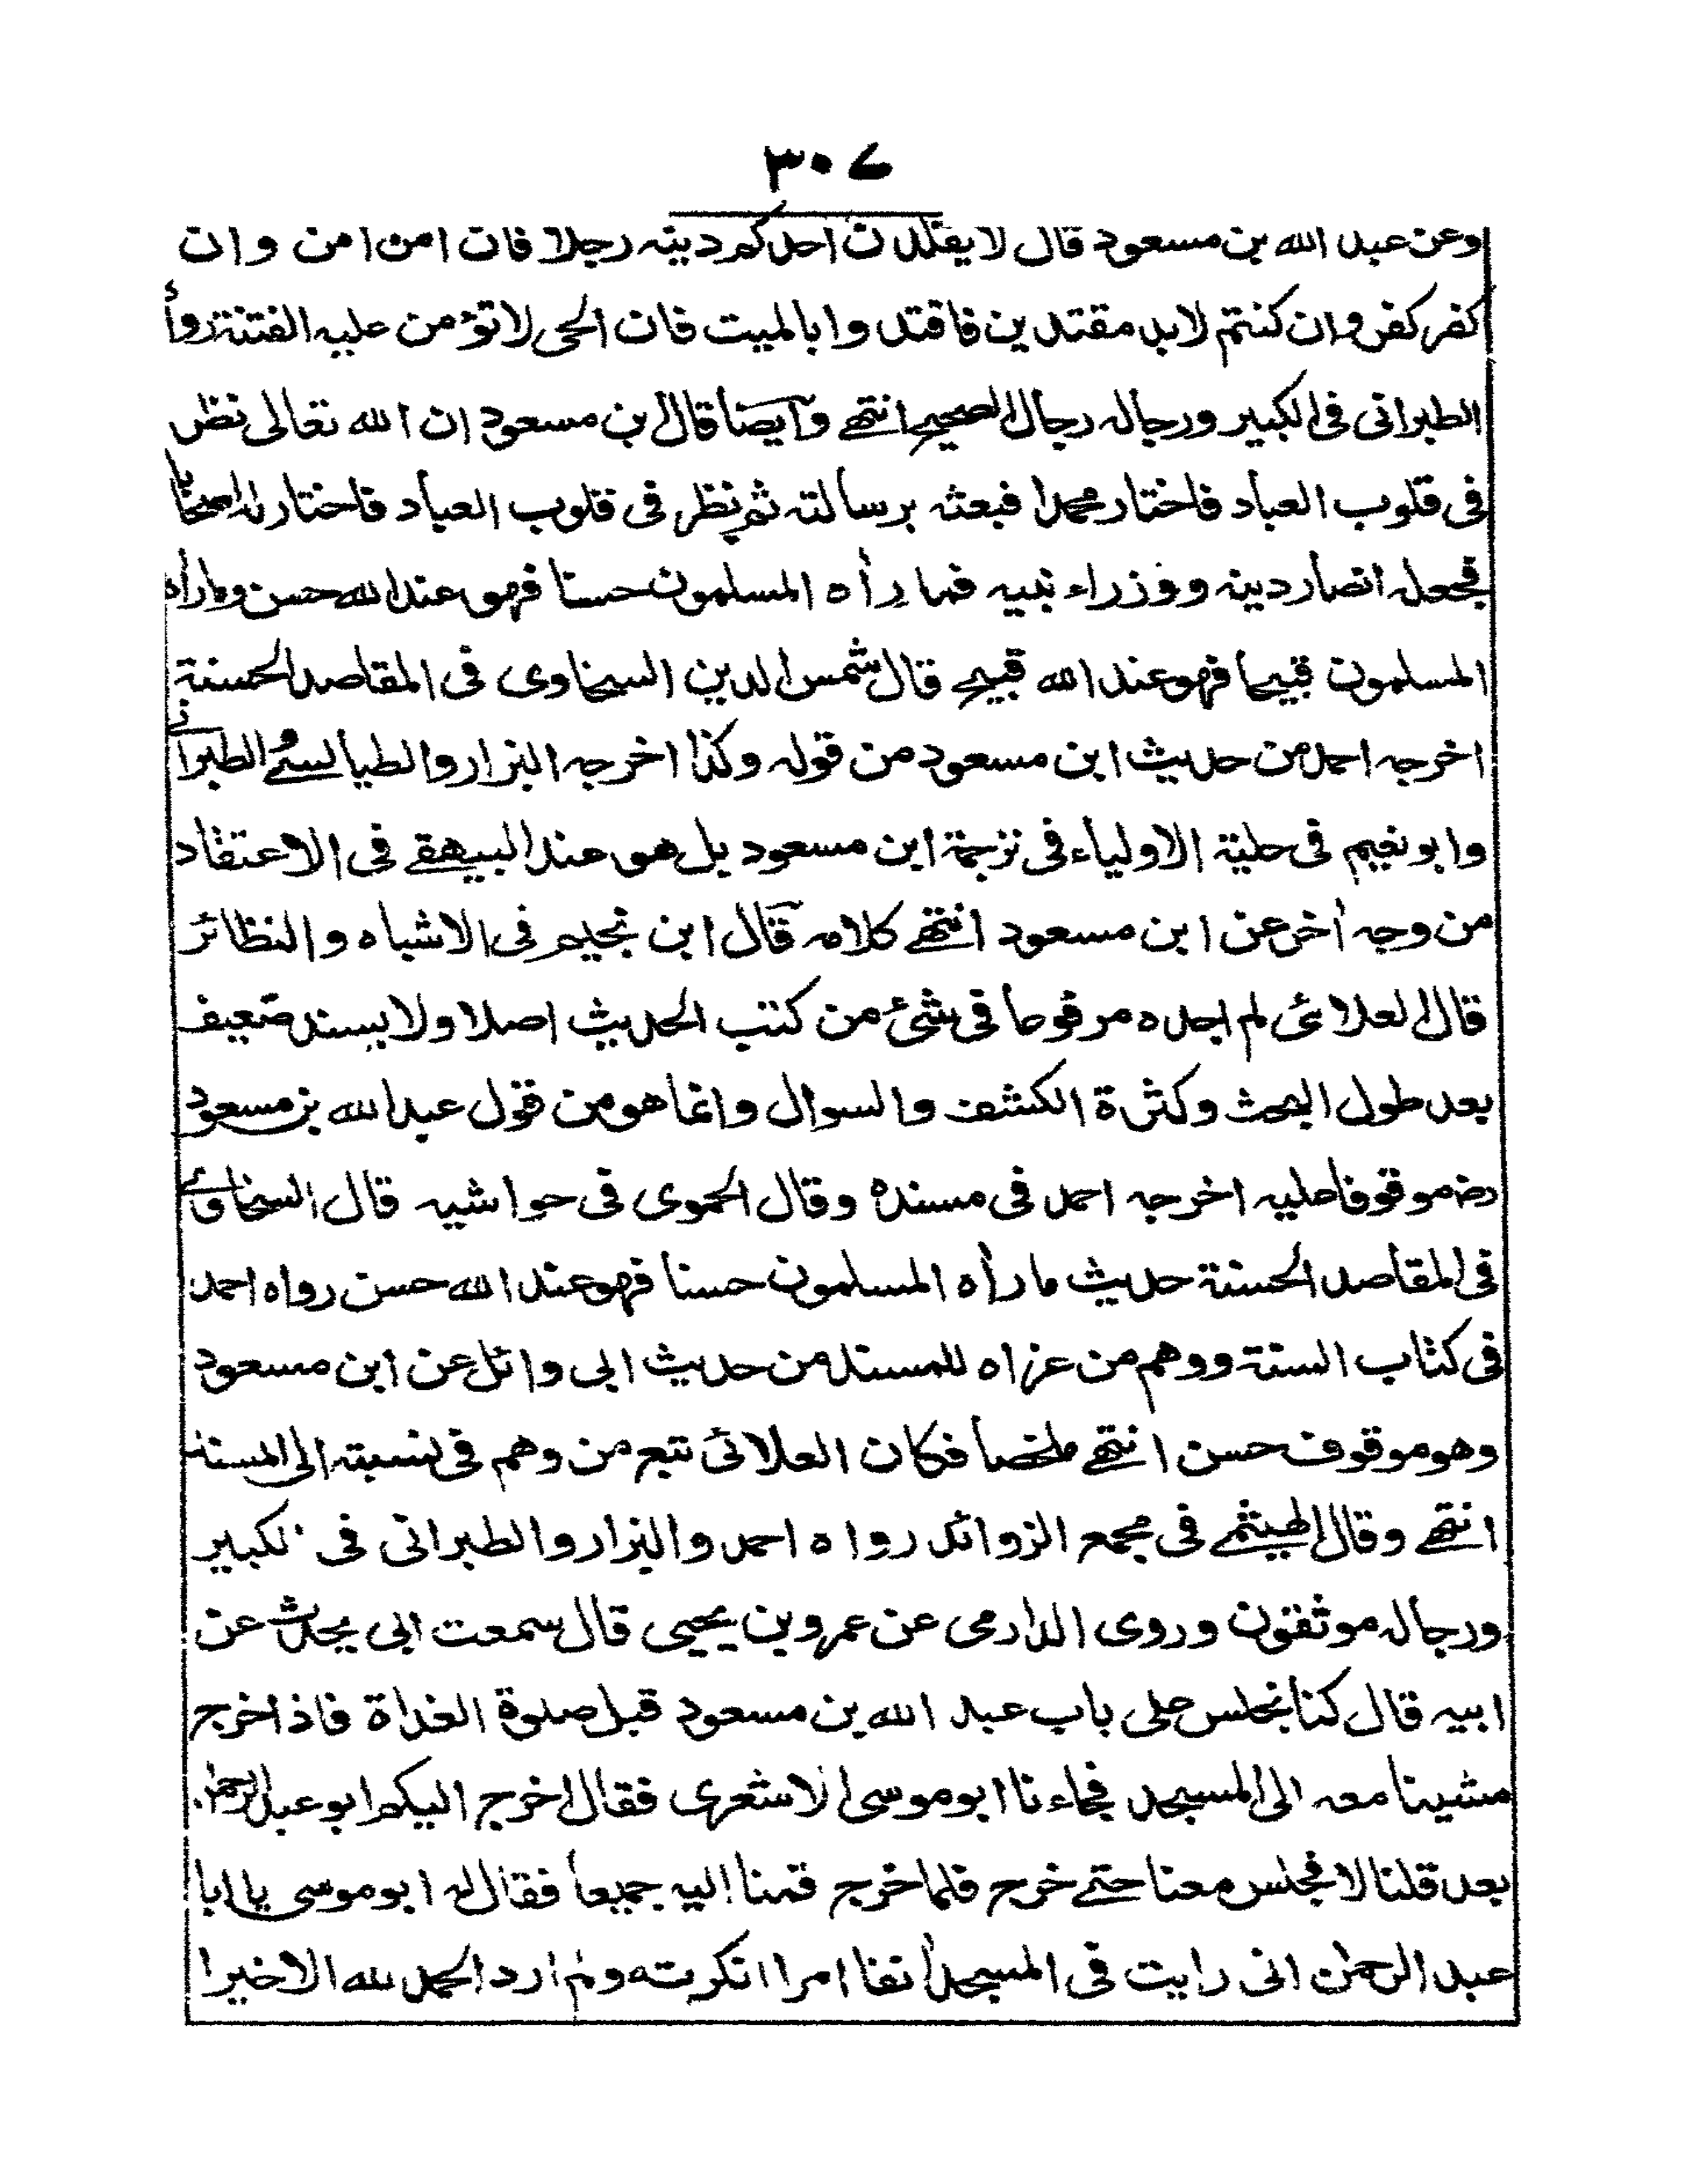 ٣٠٧
وعن عبد الله بن مسعود قال لا يقلدن احدكم دينه رجلا فان امن امن وان
كفر كفر وان كنتم لابد مقتدين فاقتدوا بالميت فان الحى لا تؤمن عليه الفتنة رواه
الطبرانى فى الكبير ورجاله رجال الصحيح انتهے وايضا قال بن مسعود ان الله تعالى نظر
فى قلوب العباد فاختار محمدا فبعثه برسالته ثم نظر فى قلوب العباد فاختار له اصحابا
فجعله انصار دينه ووزراء نبيه فما رأه المسلمون حسنا فهو عند الله حسن وما رأه
المسلمون قبيحا فهو عند الله قبيح قال شمس الدين السخاوى فى المقاصد الحسنة
اخرجه احمد من حديث ابن مسعود من قوله وكذا اخرجه البزار والطيالسے والطبرانے
وابو نعيم فى حلية الاولياء فى ترجمة ابن مسعود بل هو عند البيهقے فى الاعتقاد
من وجه أخر عن ابن مسعود انتهے كلامه قال ابن نجيم فى الاشباه والنظائر
قال العلائى لم اجده مرفوعا فى شئ من كتب الحديث اصلا ولا بسند ضعيف
بعد طول البحث وكثرة الكشف والسوال وانما هو من قول عبد الله بن مسعود
رضـ موقوفا عليه اخرجه احمد فى مسنده وقال الحموى فى حواشيه قال السخاوے
فى المقاصد الحسنة حديث ما رأه المسلمون حسنا فهو عند الله حسن رواه احمد
فى كتاب السنة ووهم من عزاه للمسند من حديث ابى وائل عن ابن مسعود
وهو موقوف حسن انتهے ملخصا فكان العلائى تبع من وهم فى نسبته الى المسند
انتهے وقال الهيثمے فى مجمع الزوائد رواه احمد والبزار والطبرانى فى الكبير
ورجاله موثقون وروى الدارمى عن عمرو بن يحيى قال سمعت ابى يحدث عن
ابيه قال كنا نجلس على باب عبد الله بن مسعود قبل صلوة الغداة فاذا خرج
مشينا معه الى المسجد فجاءنا ابو موسى الاشعرى فقال اخرج اليكم ابو عبد الرحمن
بعد قلنا لا فجلس معنا حتے خرج فلما خرج قمنا اليه جميعا فقال له ابو موسى يا ابا
عبد الرحمن انى رايت فى المسجد أنفا امرا انكرته ولم ارد الحمد لله الا خيرا